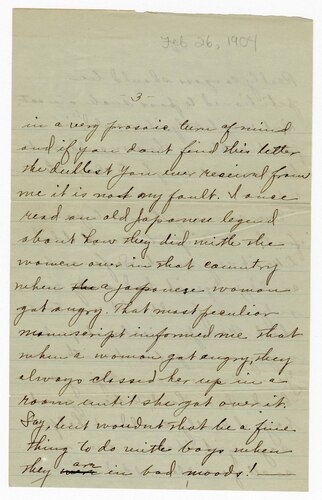 Feb 26, 1904
3-
in a very prosaic turn of mind
and if you dont find this letter
the dullest you ever received from
me it is not my fault. I once
read an old Japanese legend
about how they did with the
women over in that country
when the a Japanese woman
got angry. That most peculiar
manuscript informed me that
when a woman got angry, they
always closed her up in a
room until she got over it.
Say, but wouldn't that be a fine
thing to do with boys when
they are in bad moods!